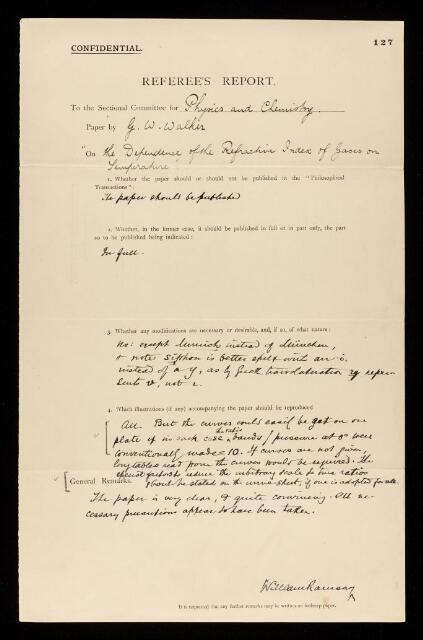 127
CONFIDENTIAL.
REFEREE'S REPORT.
To the Sectional Committee for Physics and Chemistry.
Paper by G. W. Walker
"On the Dependence of the Refractive Index of Gases on
Temperature
1. Whether the paper should or should not be published in the "Philosophical
Transactions":
The paper should be published
2. Whether, in the former case, it should be published in full or in part only, the part
so to be published being indicated:
In full.
3. Whether any modifications are necessary or desirable, and, if so, of what nature:
No: except Munich instead of München,
& note siphon is better spelt with an i.
instead of a y, as by Greek transliteration
4. Which illustrations (if any) accompanying the paper should be reproduced
All. But the curves could easily be got on one
plate if in each case the pressure at 0° were
conventionally made = 10. If curves are not given,
long tables read from the curves would be required. The
reduce the arbitrary scale to true ratios
should be stated on the curve-sheet, if one is adopted for all.
General Remarks.
The paper is very clear, & quite convincing. All ne-
cessary precautions appear to have been taken.
William Ramsay
It is requested that any further remarks may be written on foolscap paper.